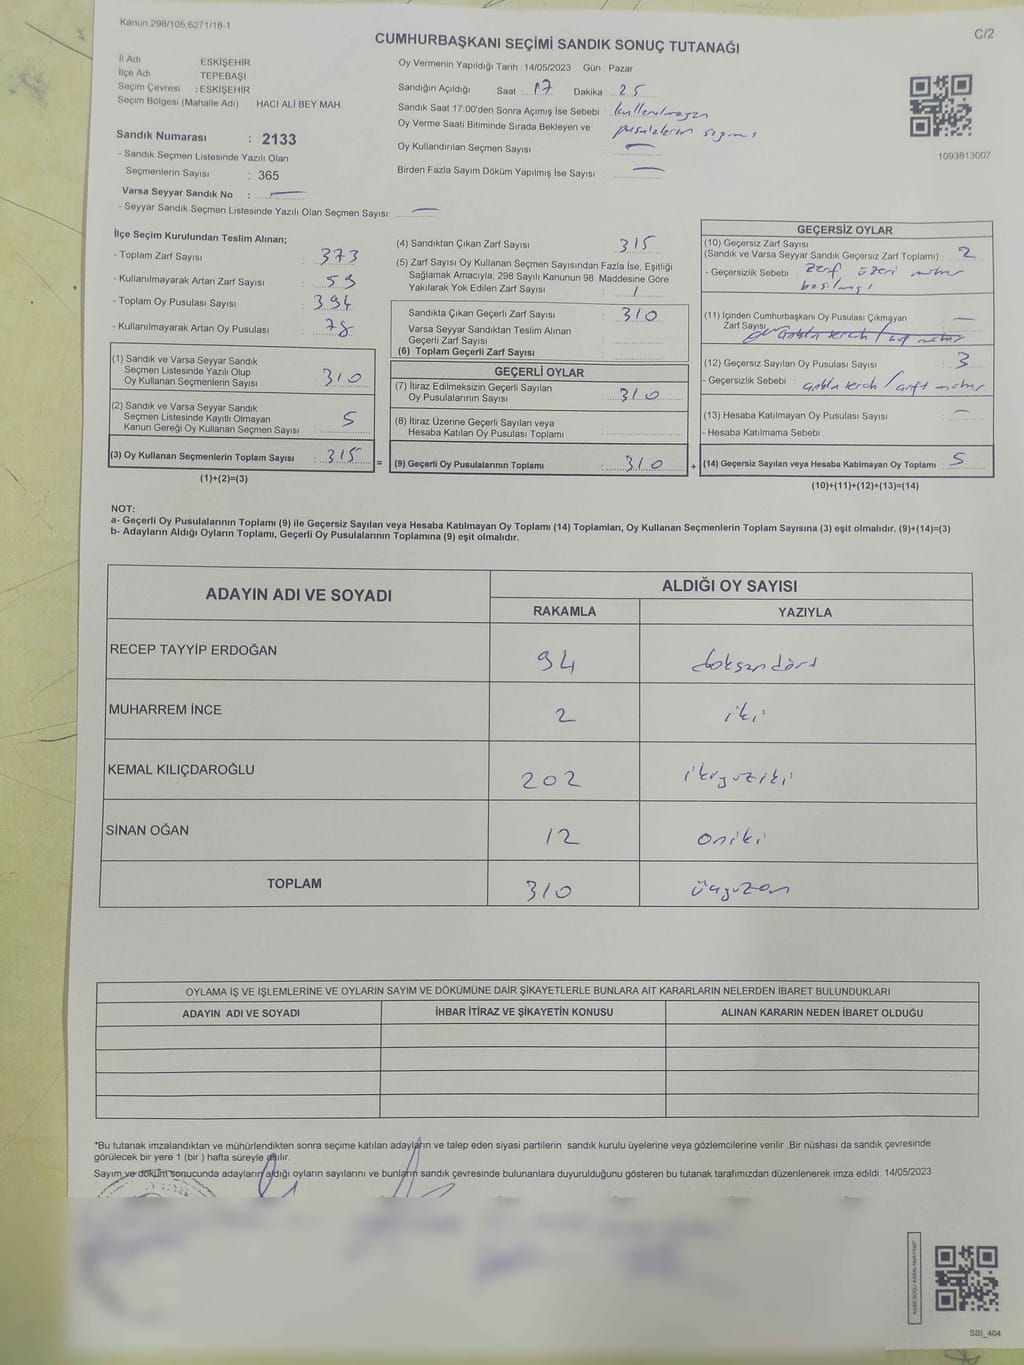 Kanun:298/105;6271/18-1
C/2
CUMHURBAŞKANI SEÇİMİ SANDIK SONUÇ TUTANAĞI
İl Adı : ESKİŞEHİR
İlçe Adı : TEPEBAŞI
Seçim Çevresi : ESKİŞEHİR
Seçim Bölgesi (Mahalle Adı) HACI ALİ BEY MAH.
Sandık Numarası : 2133
- Sandık Seçmen Listesinde Yazılı Olan
Seçmenlerin Sayısı : 365
Varsa Seyyar Sandık No :
- Seyyar Sandık Seçmen Listesinde Yazılı Olan Seçmen Sayısı:
Oy Vermenin Yapıldığı Tarih : 14/05/2023 Gün : Pazar
Sandığın Açıldığı Saat : 17 Dakika : 25
Sandık Saat 17.00'den Sonra Açımış İse Sebebi : kullanılmayan
Oy Verme Saati Bitiminde Sırada Bekleyen ve pusulaların sayımı
Oy Kullandırılan Seçmen Sayısı :
Birden Fazla Sayım Döküm Yapılmış İse Sayısı :
1093813007
İlçe Seçim Kurulundan Teslim Alınan;
- Toplam Zarf Sayısı : 373
- Kullanılmayarak Artan Zarf Sayısı : 59
- Toplam Oy Pusulası Sayısı : 394
- Kullanılmayarak Artan Oy Pusulası : 78
(1) Sandık ve Varsa Seyyar Sandık
Seçmen Listesinde Yazılı Olup
Oy Kullanan Seçmenlerin Sayısı : 310
(2) Sandık ve Varsa Seyyar Sandık
Seçmen Listesinde Kayıtlı Olmayan
Kanun Gereği Oy Kullanan Seçmen Sayısı : 5
(3) Oy Kullanan Seçmenlerin Toplam Sayısı : 315
(1)+(2)=(3)
=
(4) Sandıktan Çıkan Zarf Sayısı : 315
(5) Zarf Sayısı Oy Kullanan Seçmen Sayısından Fazla İse, Eşitliği
Sağlamak Amacıyla, 298 Sayılı Kanunun 98. Maddesine Göre
Yakılarak Yok Edilen Zarf Sayısı : /
Sandıkta Çıkan Geçerli Zarf Sayısı : 310
Varsa Seyyar Sandıktan Teslim Alınan
Geçerli Zarf Sayısı :
(6) Toplam Geçerli Zarf Sayısı :
GEÇERLİ OYLAR
(7) İtiraz Edilmeksizin Geçerli Sayılan
Oy Pusulalarının Sayısı : 310
(8) İtiraz Üzerine Geçerli Sayılan veya
Hesaba Katılan Oy Pusulası Toplamı :
(9) Geçerli Oy Pusulalarının Toplamı : 310
+
GEÇERSİZ OYLAR
(10) Geçersiz Zarf Sayısı
(Sandık ve Varsa Seyyar Sandık Geçersiz Zarf Toplamı) : 2
- Geçersizlik Sebebi : Zarf üzeri mühür
basılmış
(11) İçinden Cumhurbaşkanı Oy Pusulası Çıkmayan
Zarf Sayısı
(12) Geçersiz Sayılan Oy Pusulası Sayısı : 3
- Geçersizlik Sebebi : çoklu tercih / çift mühür
(13) Hesaba Katılmayan Oy Pusulası Sayısı :
- Hesaba Katılmama Sebebi
(14) Geçersiz Sayılan veya Hesaba Katılmayan Oy Toplamı : 5
(10)+(11)+(12)+(13)=(14)
NOT:
a- Geçerli Oy Pusulalarının Toplamı (9) ile Geçersiz Sayılan veya Hesaba Katılmayan Oy Toplamı (14) Toplamları, Oy Kullanan Seçmenlerin Toplam Sayısına (3) eşit olmalıdır. (9)+(14)=(3)
b- Adayların Aldığı Oyların Toplamı, Geçerli Oy Pusulalarının Toplamına (9) eşit olmalıdır.
ADAYIN ADI VE SOYADI ALDIĞI OY SAYISI
RAKAMLA YAZIYLA
RECEP TAYYİP ERDOĞAN 94 doksandört
MUHARREM İNCE 2 iki
KEMAL KILIÇDAROĞLU 202 ikiyüziki
SİNAN OĞAN 12 oniki
TOPLAM 310 üçyüzon
OYLAMA İŞ VE İŞLEMLERİNE VE OYLARIN SAYIM VE DÖKÜMÜNE DAİR ŞİKAYETLERLE BUNLARA AİT KARARLARIN NELERDEN İBARET BULUNDUKLARI
ADAYIN ADI VE SOYADI İHBAR İTİRAZ VE ŞİKAYETİN KONUSU ALINAN KARARIN NEDEN İBARET OLDUĞU
*Bu tutanak imzalandıktan ve mühürlendikten sonra seçime katılan adayların ve talep eden siyasi partilerin sandık kurulu üyelerine veya gözlemcilerine verilir .Bir nüshası da sandık çevresinde
görülecek bir yere 1 (bir ) hafta süreyle asılır.
Sayım ve döküm sonucunda adayların aldığı oyların sayılarını ve bunların sandık çevresinde bulunanlara duyurulduğunu gösteren bu tutanak tarafımızdan düzenlenerek imza edildi. 14/05/2023
SSI_404